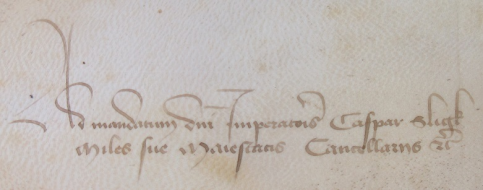 Ad mandatum dni Imperatoris Caspar Sligk
Miles sue Maiestatis Cancellarius etc